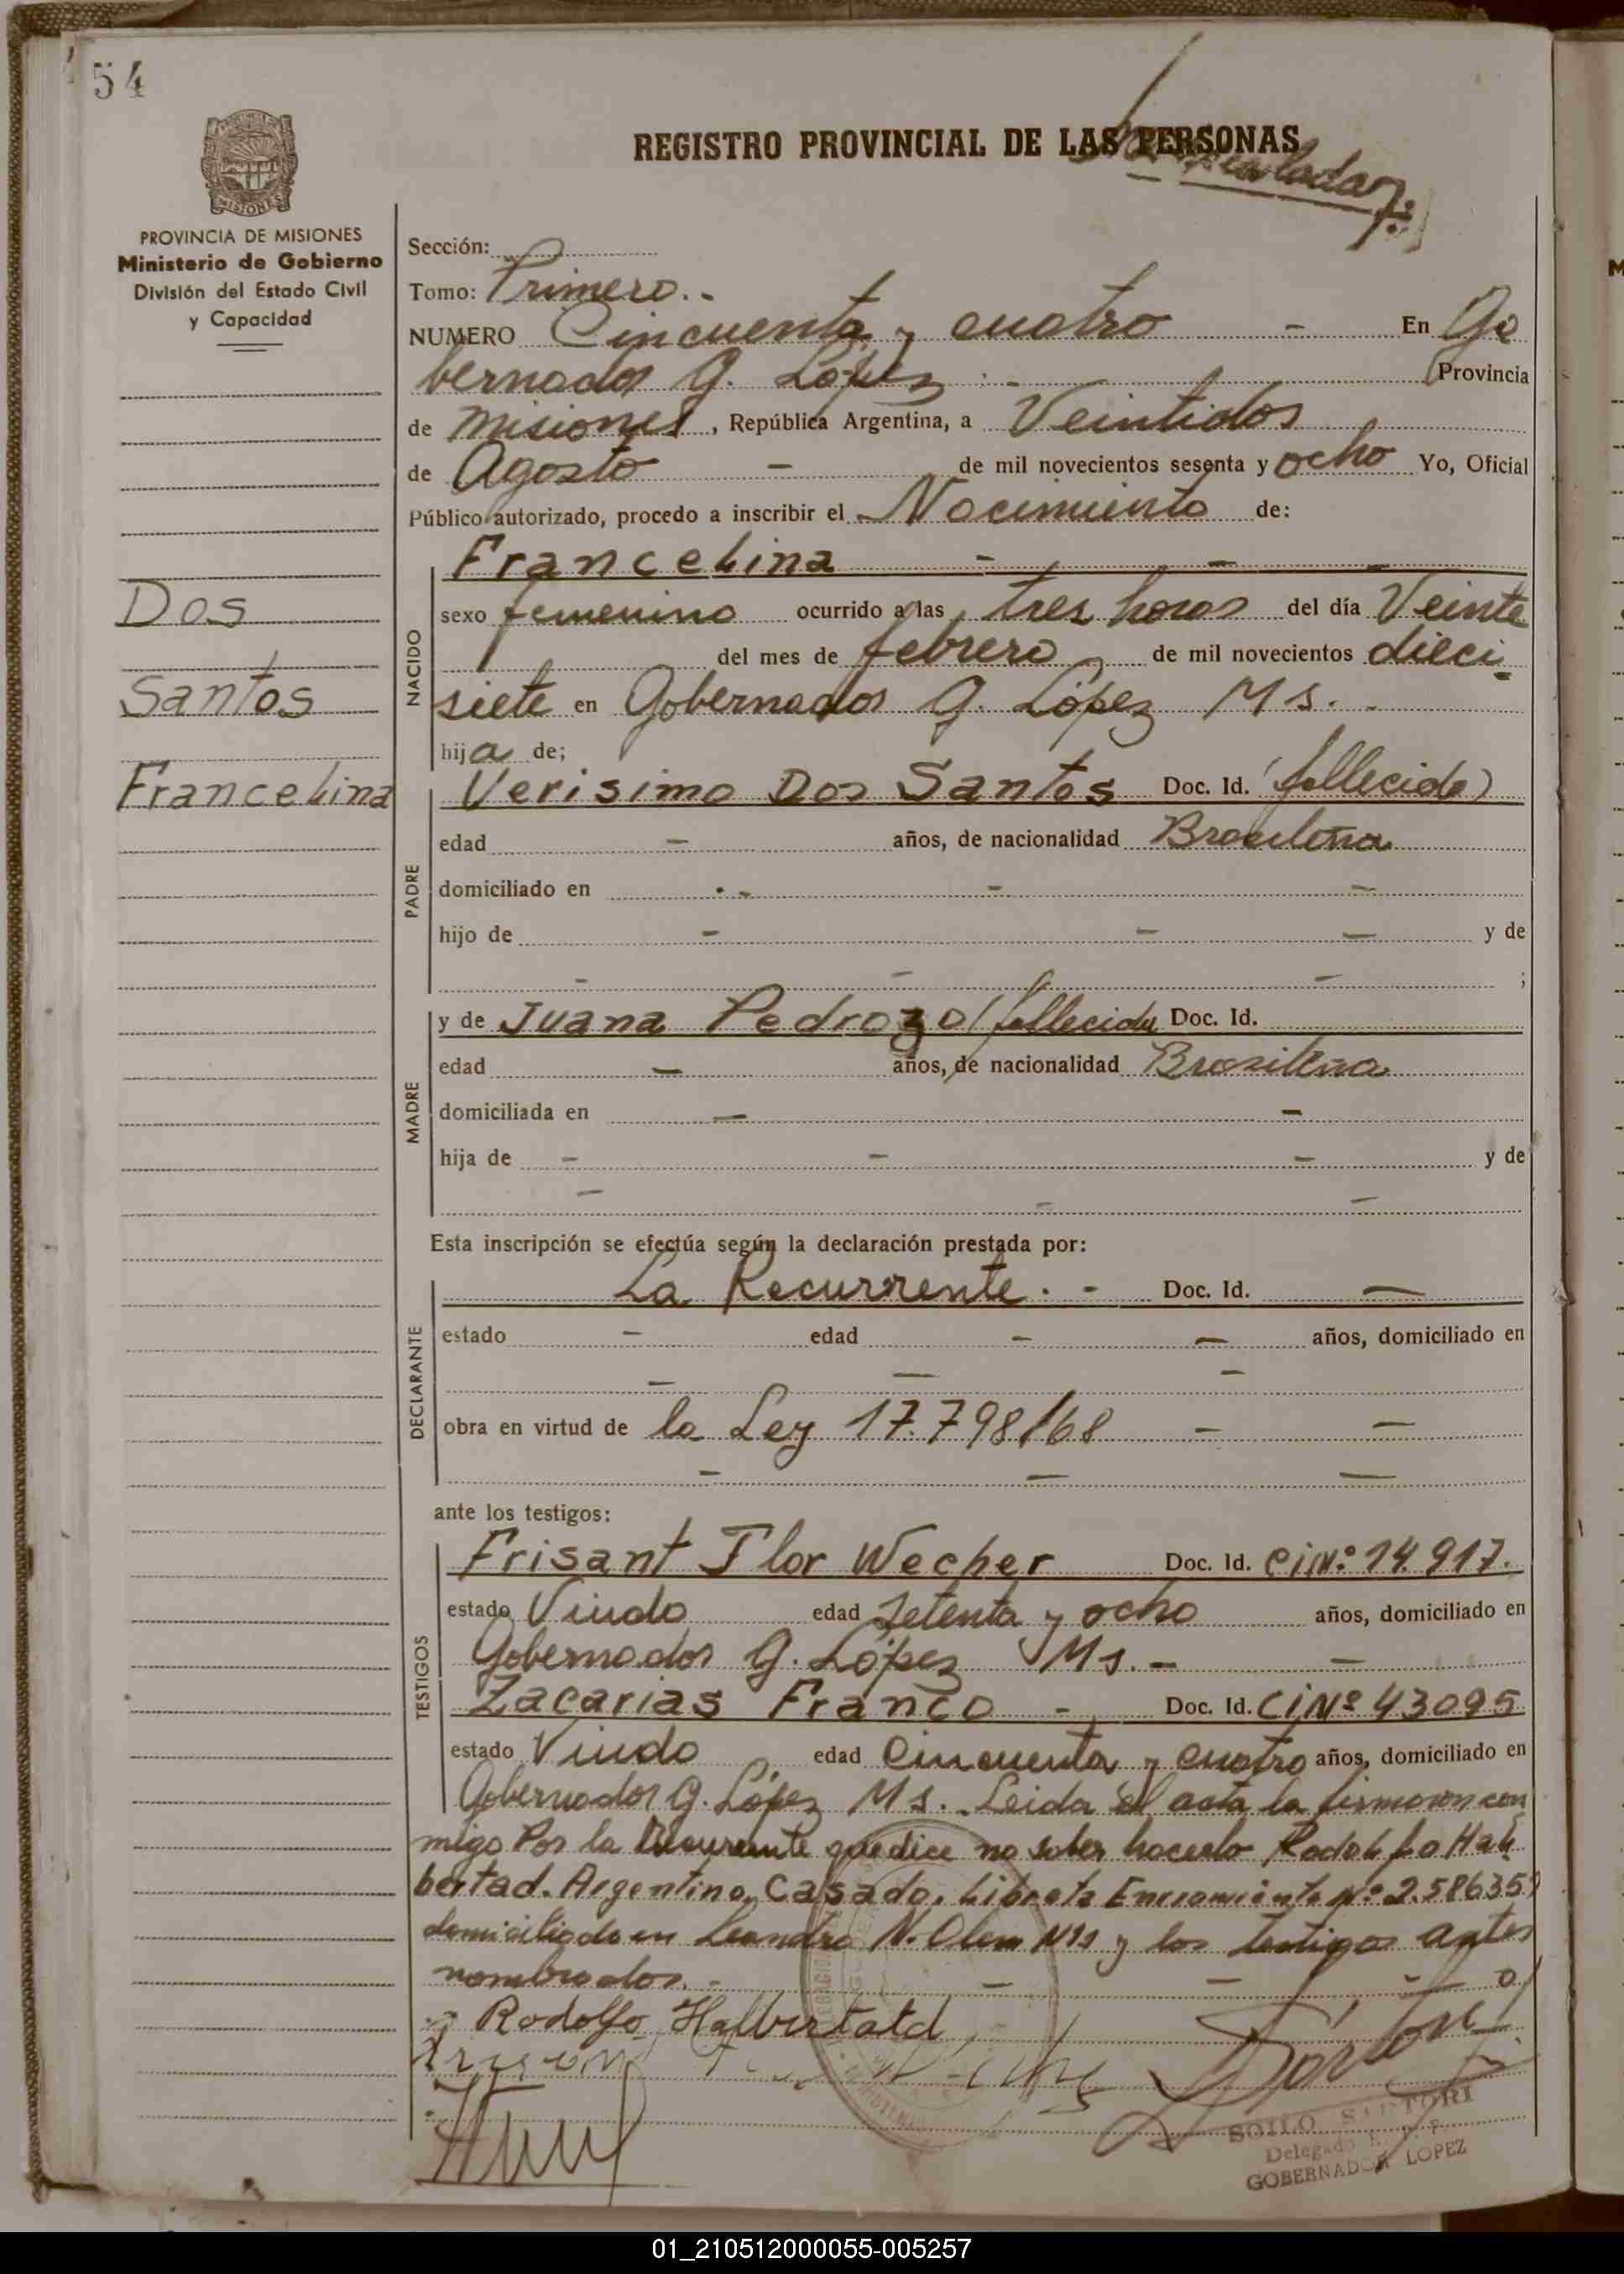 54
REGISTRO PROVINCIAL DE LAS PERSONAS
MISIONES
PROVINCIA DE MISIONES
Ministerio de Gobierno
División del Estado Civil
y Capacidad
Sección:
Tomo: Primero.-
NUMERO Cincuenta y cuatro - En Go
bernador G. López - Provincia
de Misiones, República Argentina, a Veintidos
de Agosto - de mil novecientos sesenta y ocho Yo, Oficial
Público autorizado, procedo a inscribir el Nacimiento de:
Dos
Santos
Francelina
NACIDO
Francelina - - -
sexo femenino ocurrido a las tres horas del día Veinte
del mes de febrero de mil novecientos dieci
siete en Gobernador G. López Ms. -
hija de;
PADRE
Verisimo Dos Santos Doc. Id. (fallecido)
edad - años, de nacionalidad Brasileña
domiciliado en - - -
hijo de - - - y de
- - - ;
MADRE
y de Juana Pedrozo (fallecida Doc. Id.
edad - años, de nacionalidad Brasileña
domiciliada en - -
hija de - - - y de
- - -
Esta inscripción se efectúa según la declaración prestada por:
DECLARANTE
La Recurrente. - Doc. Id. -
estado - edad - - años, domiciliado en
- - -
obra en virtud de la Ley 17.798/68 - -
- - -
ante los testigos:
TESTIGOS
Frisant Flor Wecher Doc. Id. CiNº 14.917.
estado Viudo edad Setenta y ocho años, domiciliado en
Gobernador G. López Ms. - -
Zacarias Franco - Doc. Id. CiNº 43095
estado Viudo edad Cincuenta y cuatro años, domiciliado en
Gobernador G. López Ms. - Leida el acta la firmaron con
migo Por la Recurrente que dice no saber hacerlo Rodolfo Hal
bertad. Argentino, Casado, Libreta Enrolamiento Nº 2.586359
domiciliado en Leandro N. Alem Ms y los testigos antes
nombrados. - - - -
Rodolfo Halbertatd
SOILO SARTORI
Delegado R. P. P.
GOBERNADOR LOPEZ
01_210512000055-005257